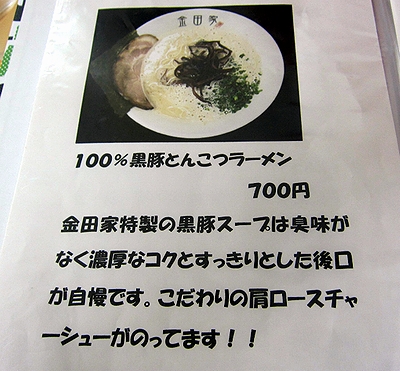 金田家
100%黒豚とんこつラーメン
700円
金田家特製の黒豚スープは臭味が
なく濃厚なコクとすっきりとした後口
が自慢です。こだわりの肩ロースチャ
ーシューがのってます！！